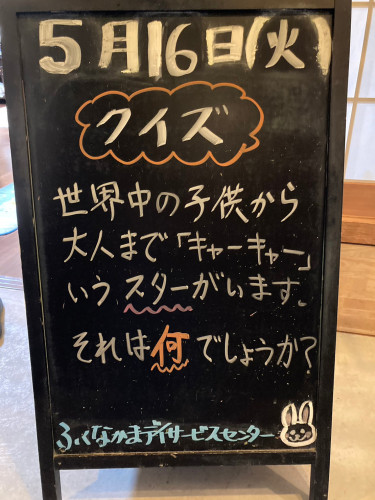 5月16日(火)
クイズ
世界中の子供から
大人まで「キャーキャー」
いうスターがいます。
それは何でしょうか?
ふくなかまデイサービスセンター